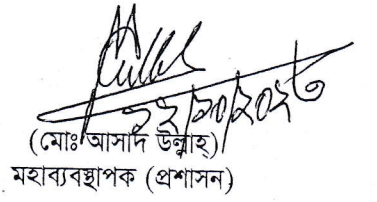 ১২/১০/২০২৩
(মোঃ আসাদ উল্লাহ)
মহাব্যবস্থাপক (প্রশাসন)